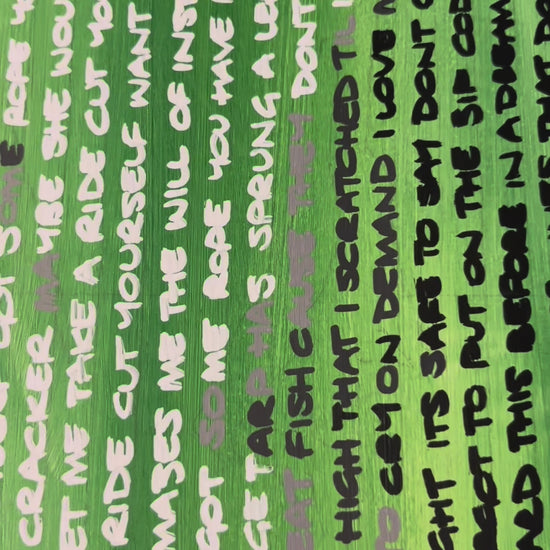 GOT SOME ROPE
CRACKER MAYBE SHE WOU
ET ME TAKE A RIDE CUT YO
RIDE CUT YOURSELF WANT
MASES ME THE WILL OF INST
GOT SOME ROPE YOU HAVE
GET ARP HAS SPRUNG A
EAT FISH CAUSE THEM DONT
HIGH THAT I SCRATCHED TIL
TO CRY ON DEMAND I LOVE
GHT ITS SAFE TO SAY DONT
RGOT TO PUT ON THE SIP COD
ALD THIS BEFORE IN A DREAM
THAT DO